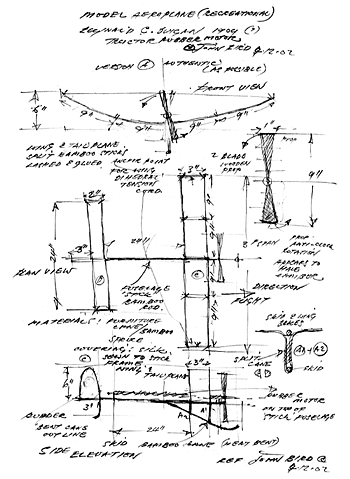 MODEL AEROPLANE (RECREATIONAL)
C. DUNCAN 1909 (?)
TRACTOR RUBBER MOTOR
© JOHN BIRD 9-12-02
VERSION A AUTHENTIC
(AS POSSIBLE)
FRONT VIEW
6"
9" 9" 9" 9"
WING & TAILPLANE
SPLIT BAMBOO STICKS
LASHED & GLUED
ANCHOR POINT
FOR WING
DIHEDRAL
TENSION
CORD.
2 BLADE
WOODEN
PROP
1"
9"
2"
3"
3"
24"
PLAN VIEW
FUSELAGE
STICK
BAMBOO
ROD.
SPAN
PROP
ANTI-CLOCK
ROTATION
APPEARS TO
HAVE
CAMBER
DIRECTION
FLIGHT
MATERIALS: FURNITURE
CANE/
BAMBOO
SPRUCE
COVERING: SILK
SEWN TO STICK
FRAME
WING &
TAILPLANE
SPLIT
CANE
SKID
A1 + A2
SKID
3"
RUDDER
BENT CANE
OUTLINE
3"
24"
A2 A1
RUBBER
MOTOR
ON TOP OF
STICK FUSELAGE
SKID BAMBOO CANE (HEAT BENT)
SIDE
ELEVATION
REF JOHN BIRD ©
9-12-02